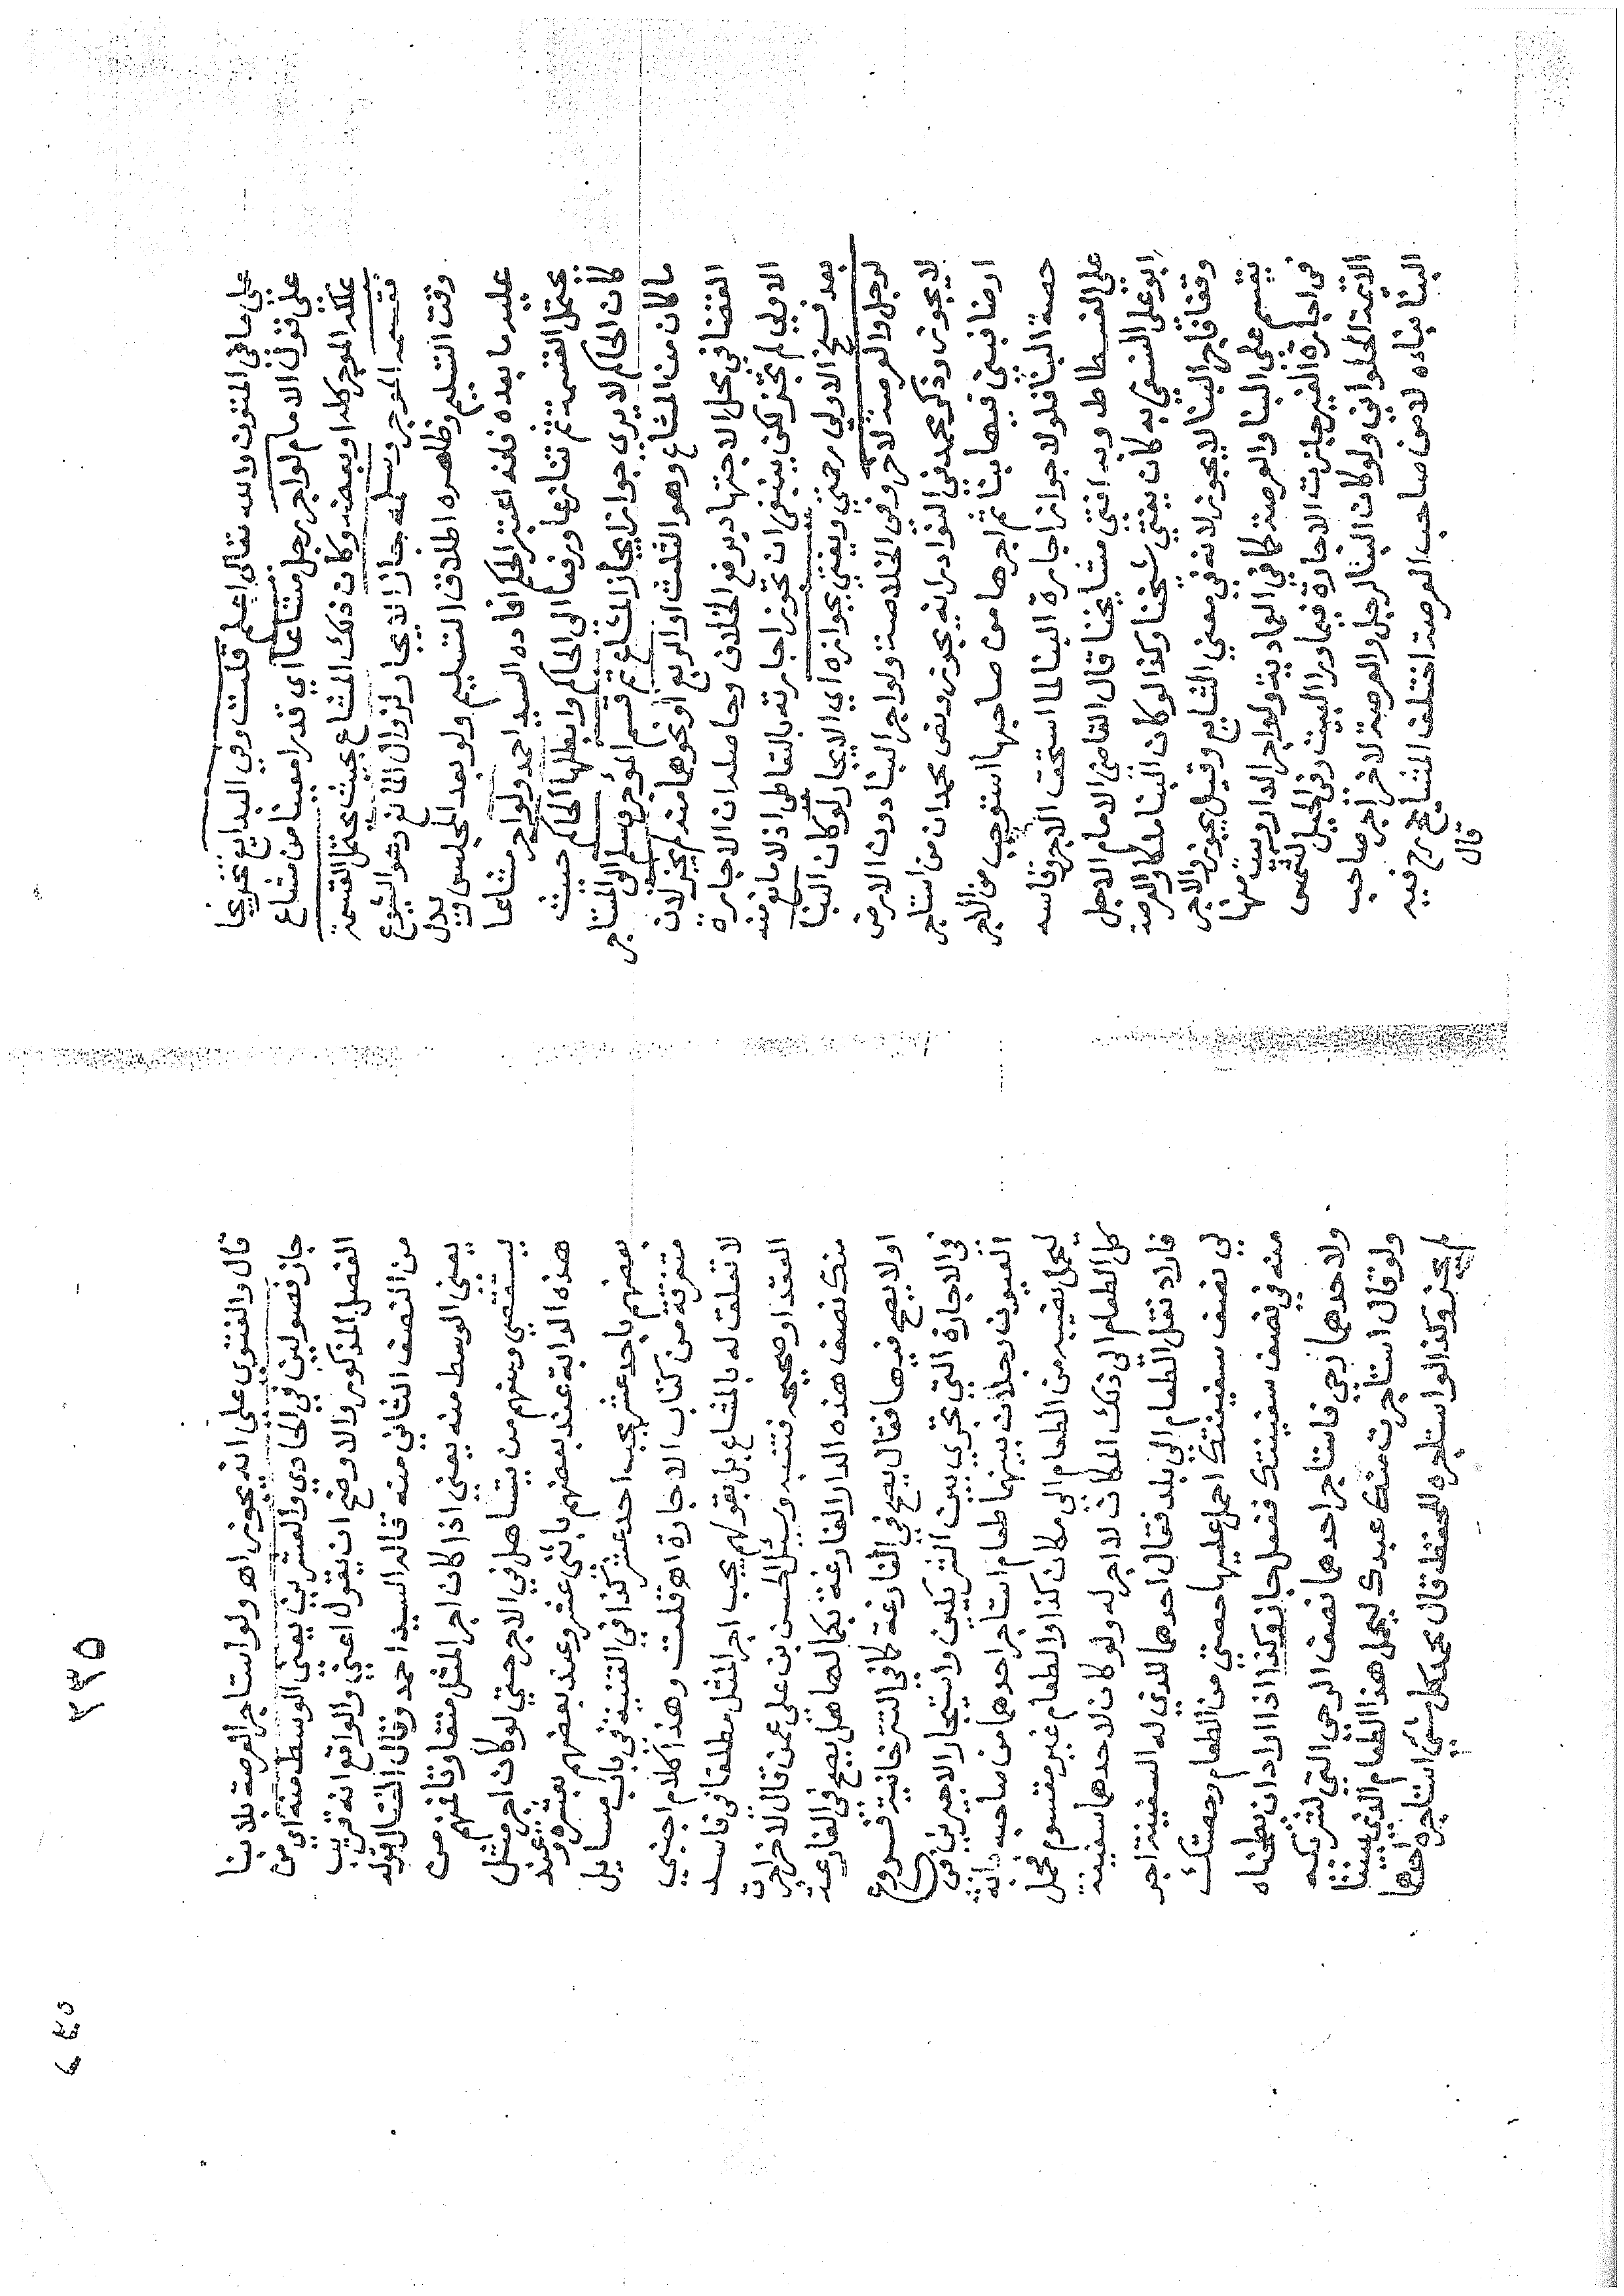 على ما في المتون والله تعالى اعلم قلت وفي البدايع تخريجا
على قول الامام لو اجر رجل مشاعا اي قدرا معينا من مشاع
يملكه الموجر كله او بعضه وكان ذلك المشاع بحيث يحتمل القسمة
فقسمه الموجر وسلمه جاز الايجار لزوال المانع وهو الشيوع
وقت التسليم وظاهره اطلاق التسليم ولو بعد المجلس ويدل
عليه ما بعده فلعله اعتبر الحكم افاده السيد احمد ولو اجر مشاعا
يحتمل القسمة ثم تنازعا ورفعا الى الحاكم وابطلها الحاكم حيث
كان الحاكم لا يرى جواز ايجار المشاع ثم قسم المؤجر وسلم الى المستاجر
ما كان من المشاع وهو الثلث او الربع او نحوهما منه لم يجز لان
القضا في محل الاجتهاد يرفع الخلاف وحاصله ان الاجارة
الاولى لم تجز لكن ينبغي ان تجوز اجارته بالتعاطي اذ لا مانع منه
بعد فسخ الاولى رحمتي ويفتي بجوازه اي الايجار لو كان البنا
لرجل والعرصة لاخر وفي الخلاصة ولو اجر البنا دون الارض
لا يجوز وذكر محمد في النوادر انه يجوز ونص محمد ان من استاجر
ارضا فبنى فيها بنا ثم اجرها من صاحبها استوجب من الاجر
حصة البنا فلولا جواز اجارة البنا لما استحق الاجر وقاسه
على الفسطاط وبه افتى مشايخنا قال القاضي الامام الاجل
ابو علي النسفي به كان يفتي شيخنا وكذا لو كان البنا ملكا والعرصة
وقفا فاجر البنا لا يجوز لانه في معنى الشايع وقيل يجوز والاجر
يقسم على البنا والعرصة كما في العمادية ولو اجر الدار وبيت منها
في اجارة الغير جازت الاجارة فيما ورا البيت وفي الحيل لشمس
الائمة الحلواني ولو كان البنا لرجل والعرصة لاخر اجر صاحب
البنا بناءه لا من صاحب العرصة اختلف المشايخ رح فيه
قال
٢٣٥
قال والفتوى على انه يجوز اه ولو استاجر العرصة بلا بنا
جاز فصولين في الحادي والعشرين يعني الوسط منه اي من
الفصل المذكور والاوضح ان يقول اعني والواقع انه قريب
من النصف الثاني منه قاله السيد احمد وقال الخشال قوله
يعني الوسط منه يعني اذا كان اجر المثل متفاوتا فمنهم من
يستقصي ومنهم من يتساهل في الاجر حتى لو كان اجر مثل
هذه الدابة عند بعضهم باثنى عشر وعند بعضهم بعشرة وعند
بعضهم باحد عشر يجب احد عشر كذا في القنية في باب مسايل
متفرقة من كتاب الاجارة اه قلت وهذا كلام اجنبي
لا تعلق له بالمشاع بل بقولهم يجب اجر المثل مطلقا في فاسد
العقد او صحيحه فتنبه وسئل الحسن بن علي عمن قال لاخر اجرت
منك نصف هذه الدار الفارغة بكمالها هل يصح في الفارغة
او لا يصح فيها فقال يصح في الفارغة كما في التترخانية فروع
في الاجارة التي تجري بين الشريكين واستيجار الاجير في
العيون رجلان بينهما طعام استاجر احدهما من صاحبه دابة
ليحمل نصيبه من الطعام الى مكان كذا والطعام غير مقسوم فحمل
كل الطعام الى ذلك المكان لا اجر له ولو كان لاحدهما سفينة
فاراد نقل الطعام الى بلد فقال احدهما للذي له السفينة اجر
لي نصف سفينتك احمل عليها حصتي من الطعام وحصتك
منه في نصف سفينتك ففعل جاز وكذا اذا اراد ان يطحناه
ولاحدهما رحى فاستاجر احدهما نصف الرحى التي لشريكه
ولو قال استاجرت منك عبدك ليحمل هذا الطعام الذي بيننا
لم يجز وكذا لو استاجره للحفظ قال محمد كل شيء استاجره احدهما
٢٤٥